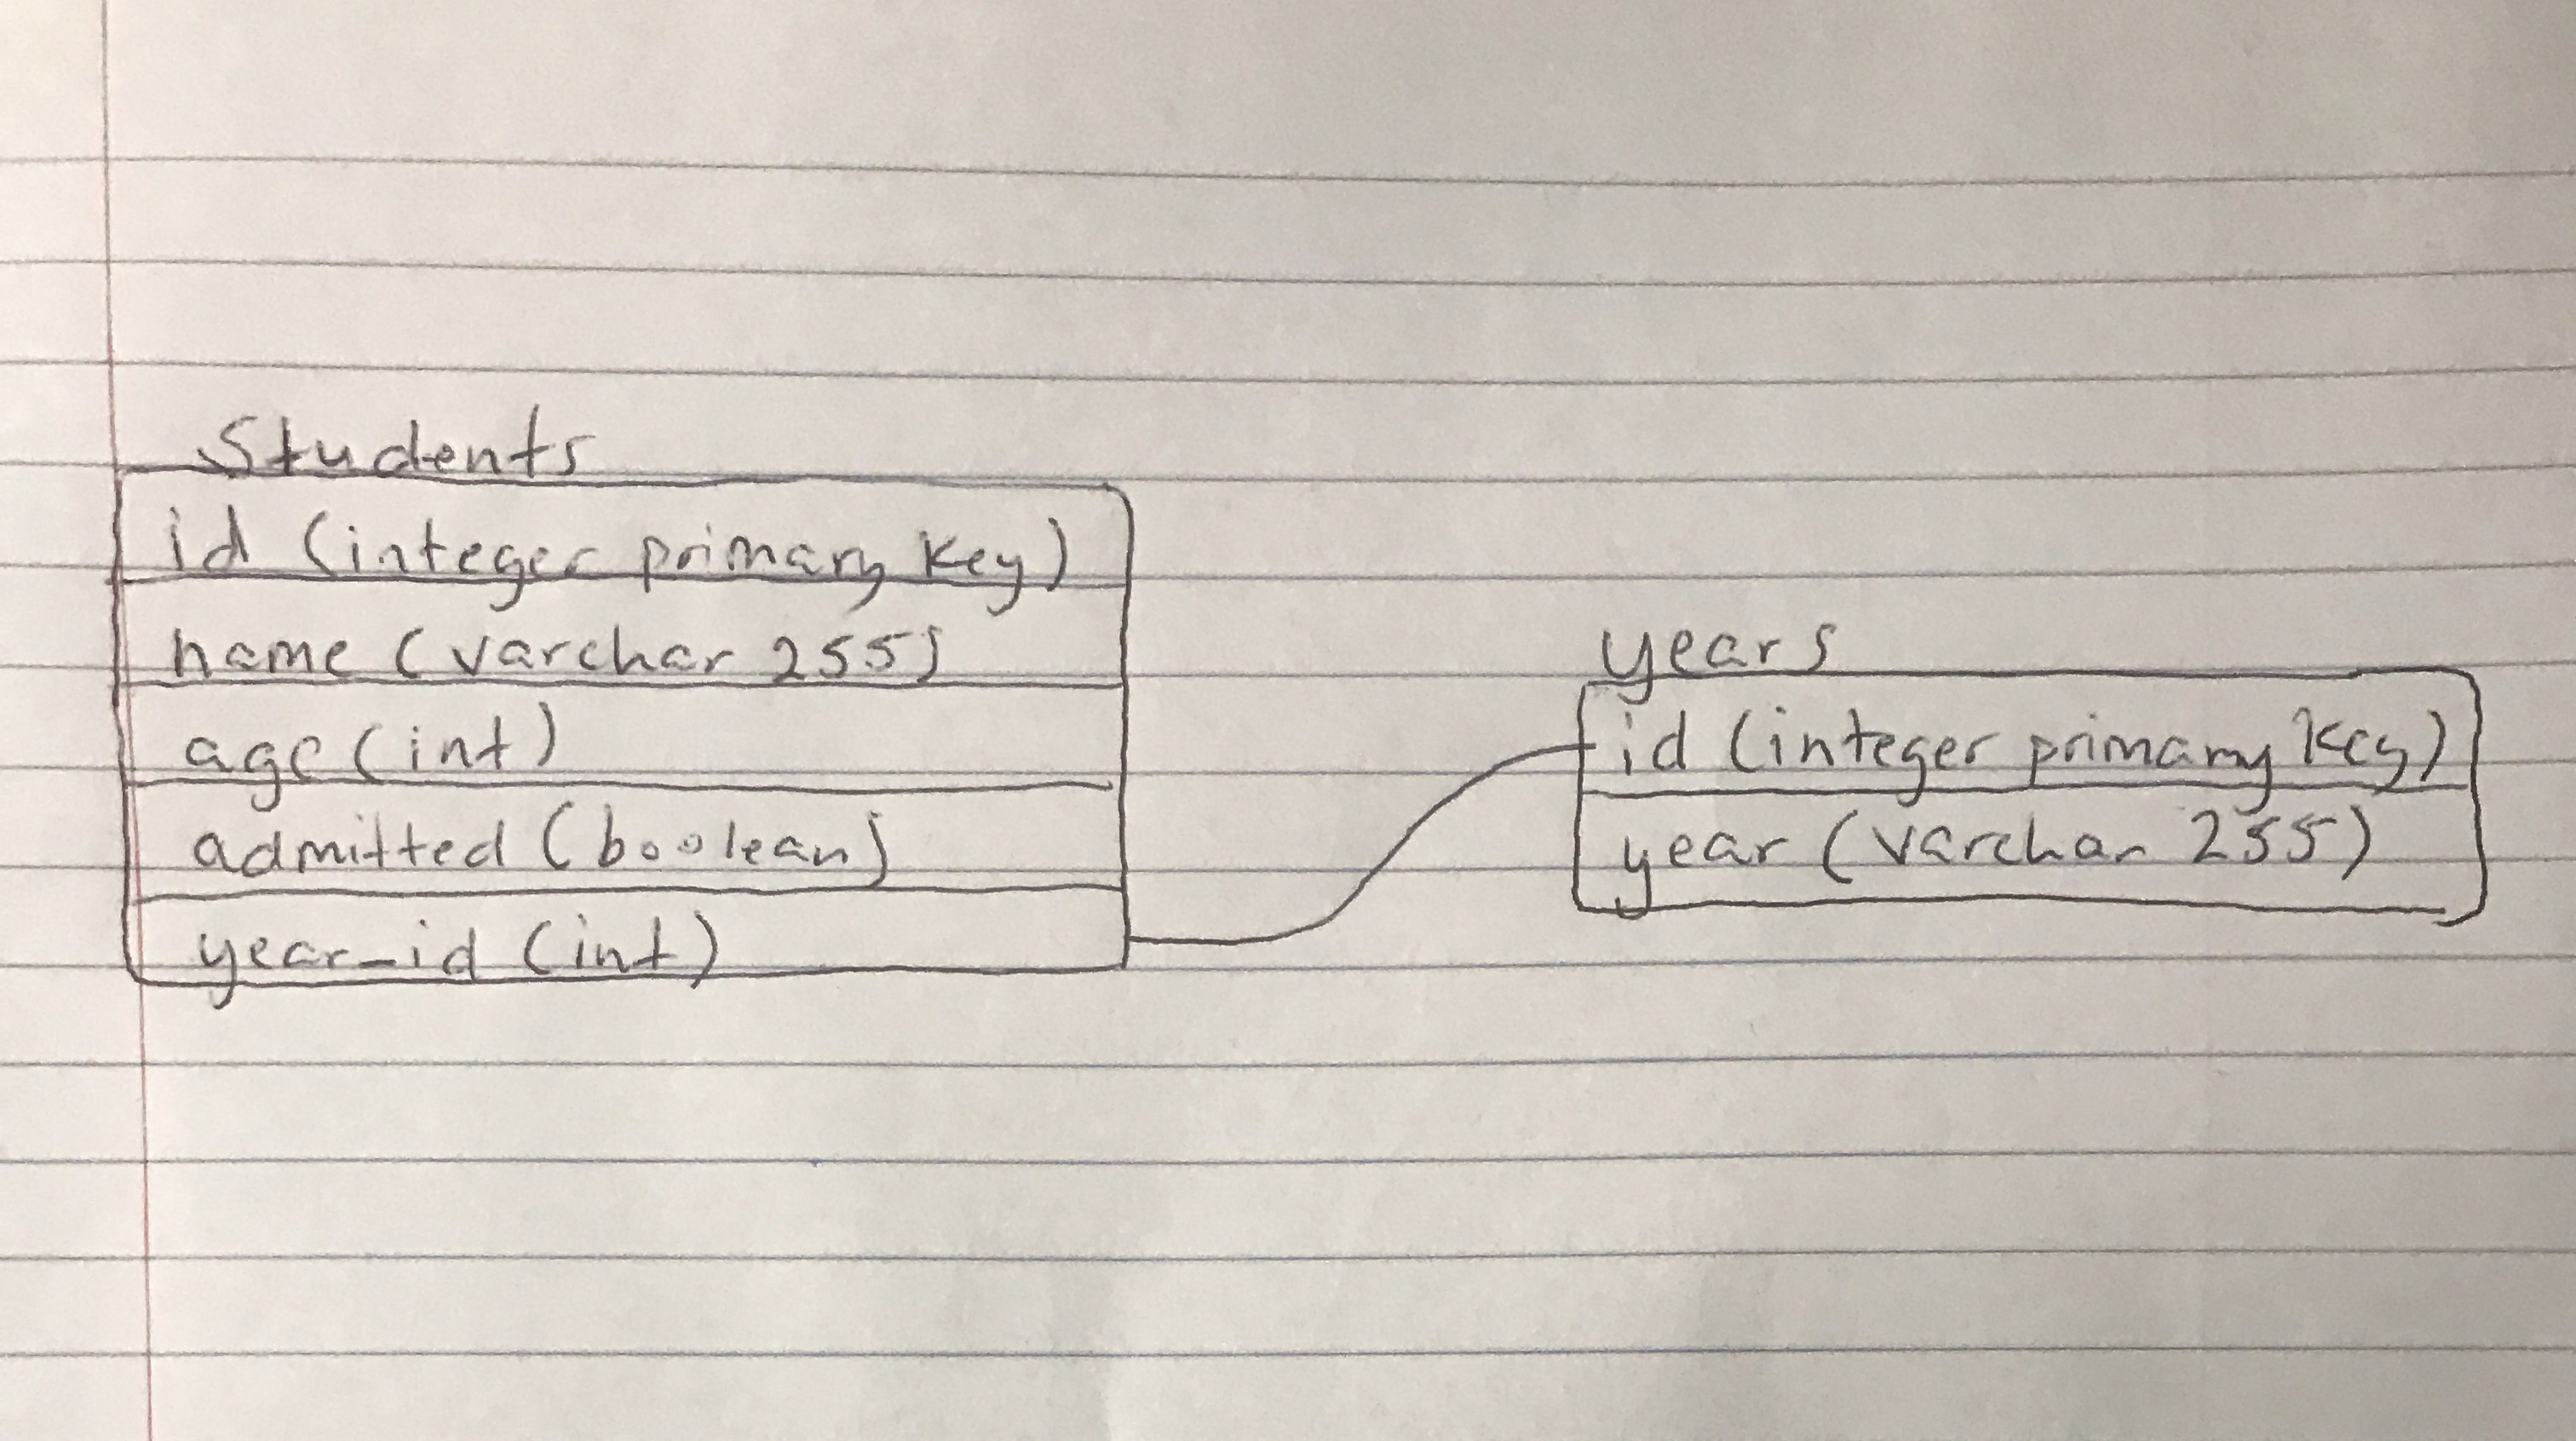 Students
id (integer primary key)
name (varchar 255)
age (int)
admitted (boolean)
year_id (int)
years
id (integer primary key)
year (varchar 255)